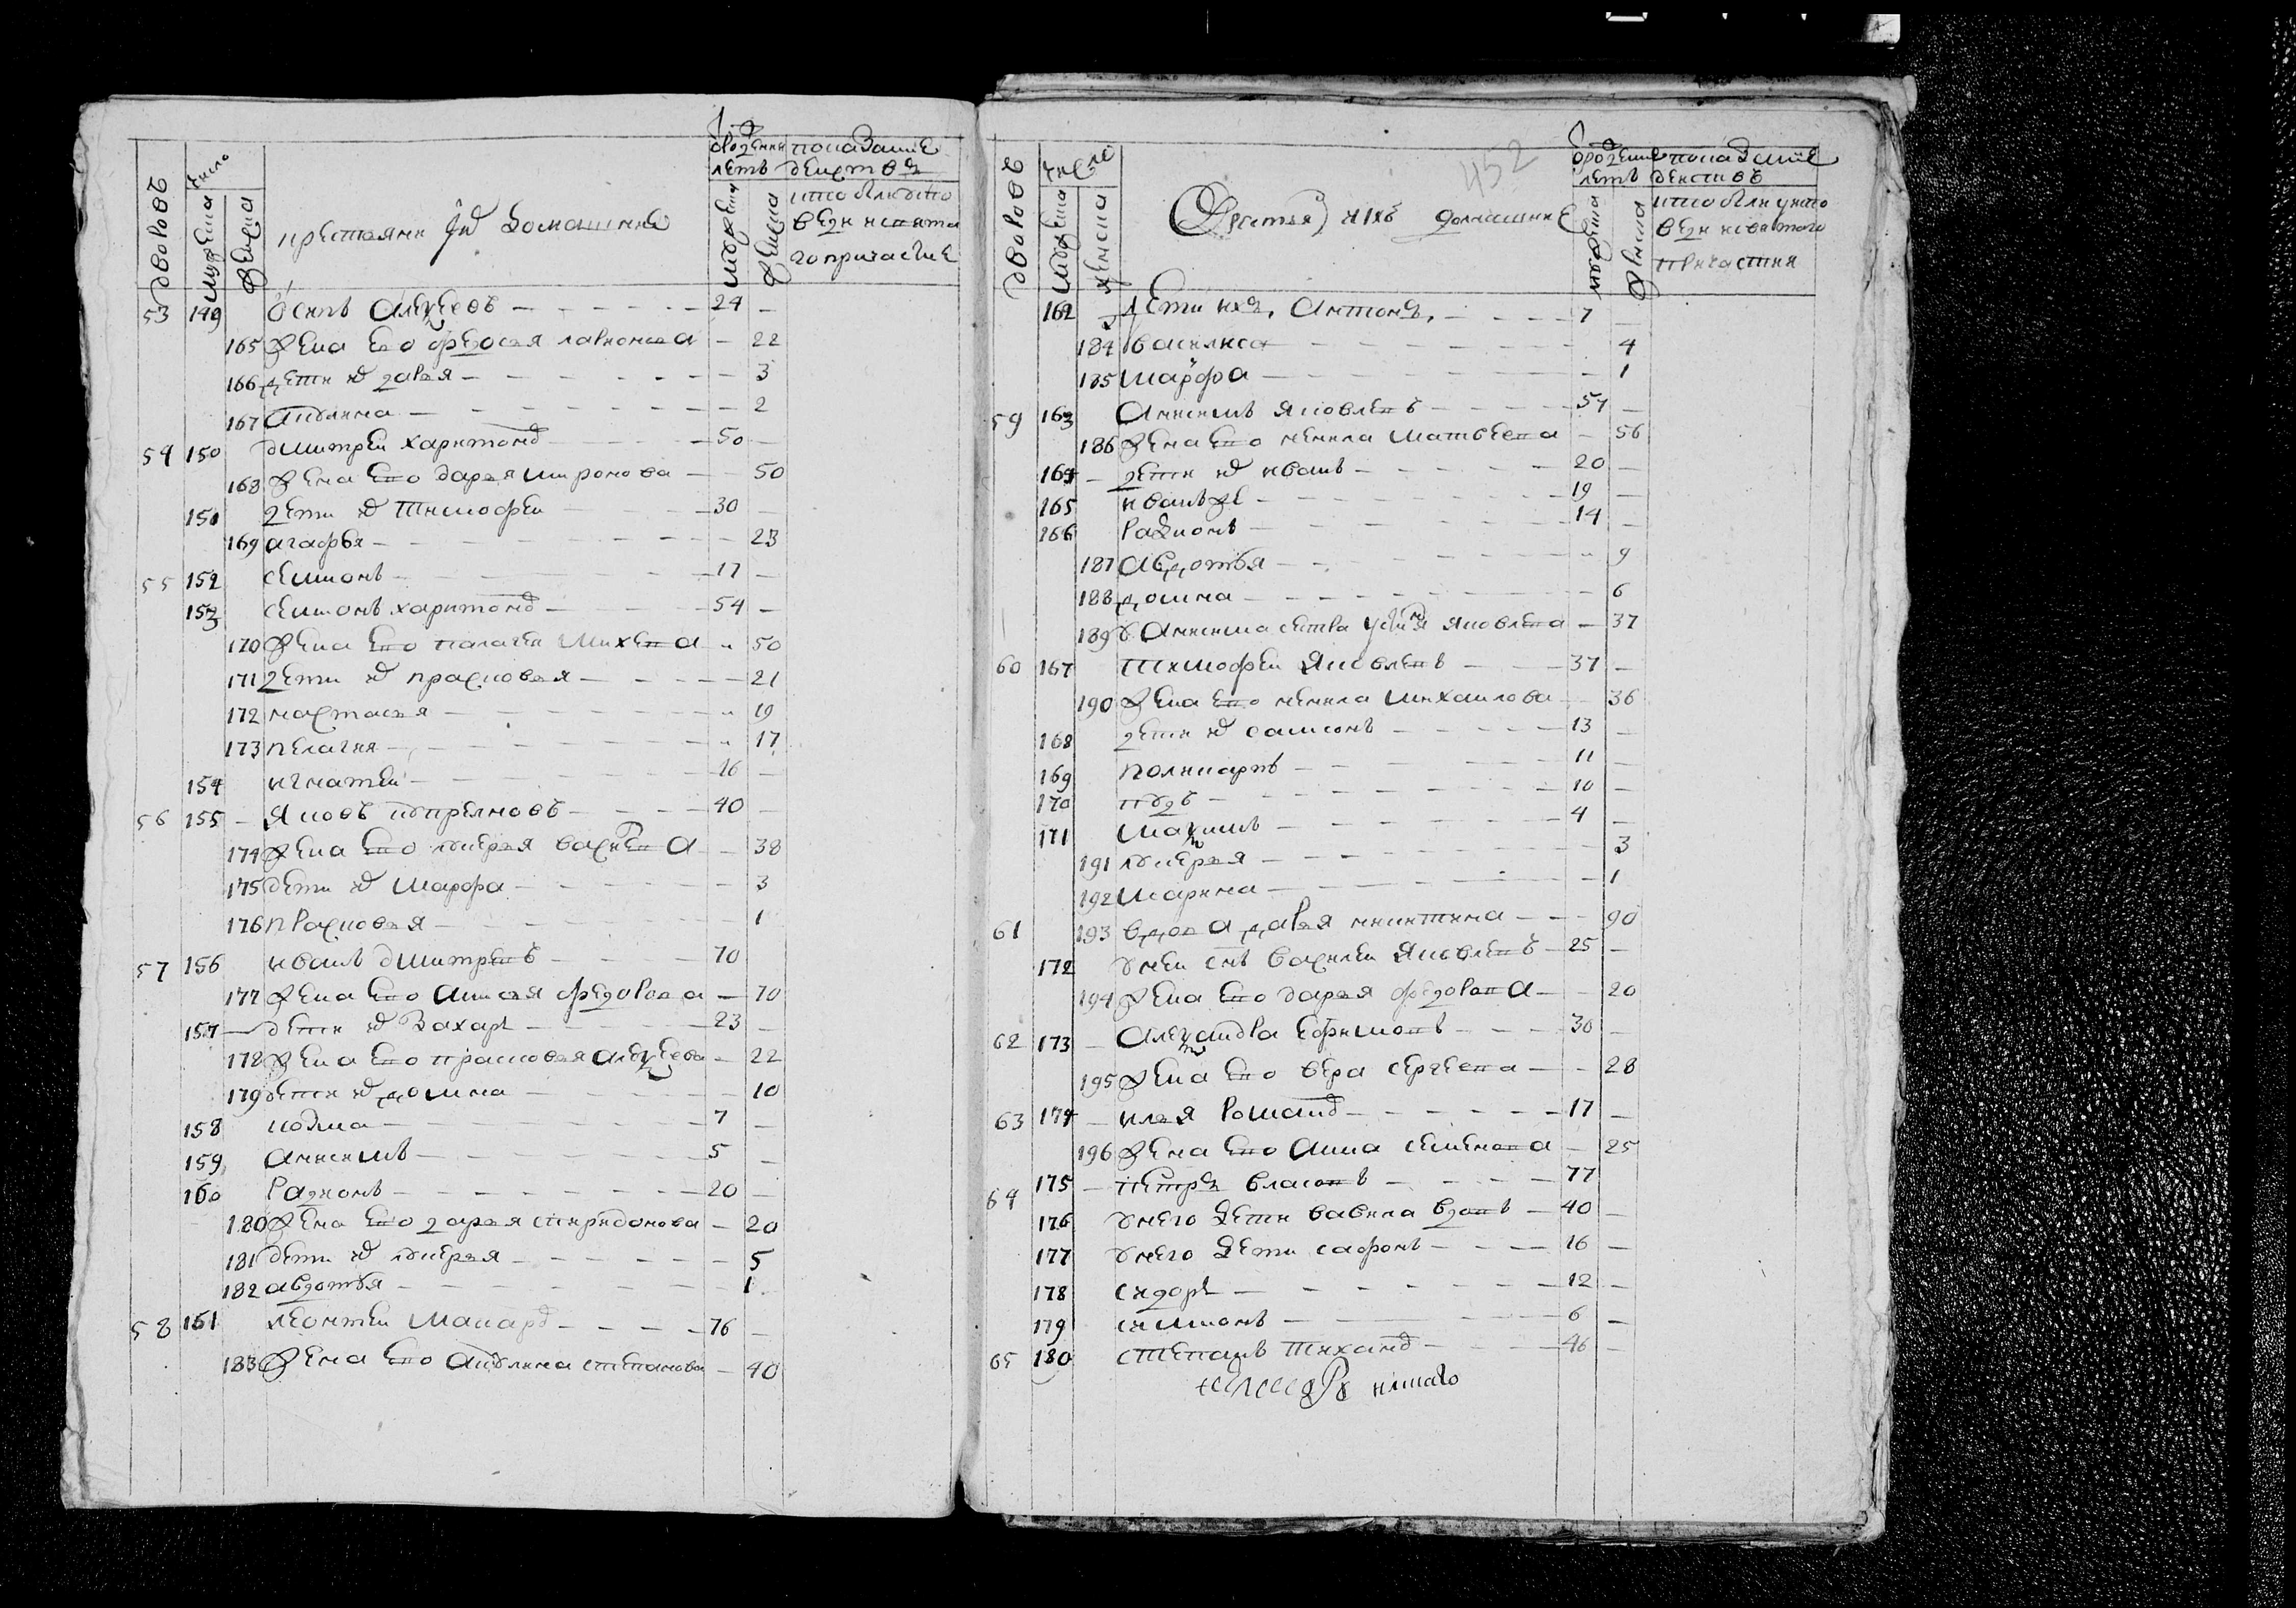 дворовъ
число
мужеска
женска
крестьяня их домашние
от рождения
летъ
мужеска
женска
показание
действъ
кто былъ у исповеди и святаго причастие
53 149 Осипъ Алексеевъ 24
165 жена ево федосья ларионова 22
166 дети их дарья 3
167 Акулина 2
54 150 дмитреи харитонов 50
168 жена ево дарья миронова 50
151 дети их тимофеи 30
169 агафья 23
55 152 симонъ 17
153 симонъ харитонов 54
170 жена ево палагеи михеева 50
171 дети их прасковья 21
172 настасья 19
173 пелагия 17
154 игнатеи 16
56 155 Яковъ куприяновъ 40
174 жена ево лукерья васильева 38
175 дети их марфа 3
176 прасковья 1
57 156 иванъ дмитреевъ 70
177 жена ево Анисья федорова 70
157 дети их Захаръ 23
178 жена ево прасковья алексеева 22
179 дети их домна 10
158 козма 7
159 Анисимъ 5
160 Радионъ 20
180 жена ево дарья спиридонова 20
181 дети их лукерья 5
182 авдотья 1
58 161 леонтеи Макаров 76
183 жена ево Акулина степанова 40
452
дворовъ
число
мужеска
женска
Крестьяня и их домашние
от рождения
летъ
мужеска
женска
показание
действъ
кто былъ у исповеди и святаго
причастия
162 дети ихъ, Антонъ, 7
184 василиса 4
185 марфа 1
59 163 Анисимъ яковлевъ 57
186 жена ево ненила матвеева 56
164 дети их иванъ 20
165 иванъ же 19
166 Радионъ 14
187 Авдотья 9
188 домна 6
189 у Анисима сестра яковлева 37
60 167 тимофеи Яковлевъ 37
190 жена ево ненила михаилова 36
168 дети их самсонъ 13
169 поликарпъ 11
170 10
171 максимъ 4
191 лукерья 3
192 марина 1
61 193 вдова дарья никитина 90
172 у неи снъ василеи Яковлевъ 25
194 жена ево дарья федорова 20
62 173 Александра ефимовъ 30
195 жена ево вера сергеева 28
63 174 илья Романов 17
196 жена ево Анна семенова 25
64 175 петръ власовъ 77
176 у него дети вавила вдовъ 40
177 у него дети сафонъ 16
178 сидоръ 12
179 симионъ 6
65 180 степанъ тиханов 46